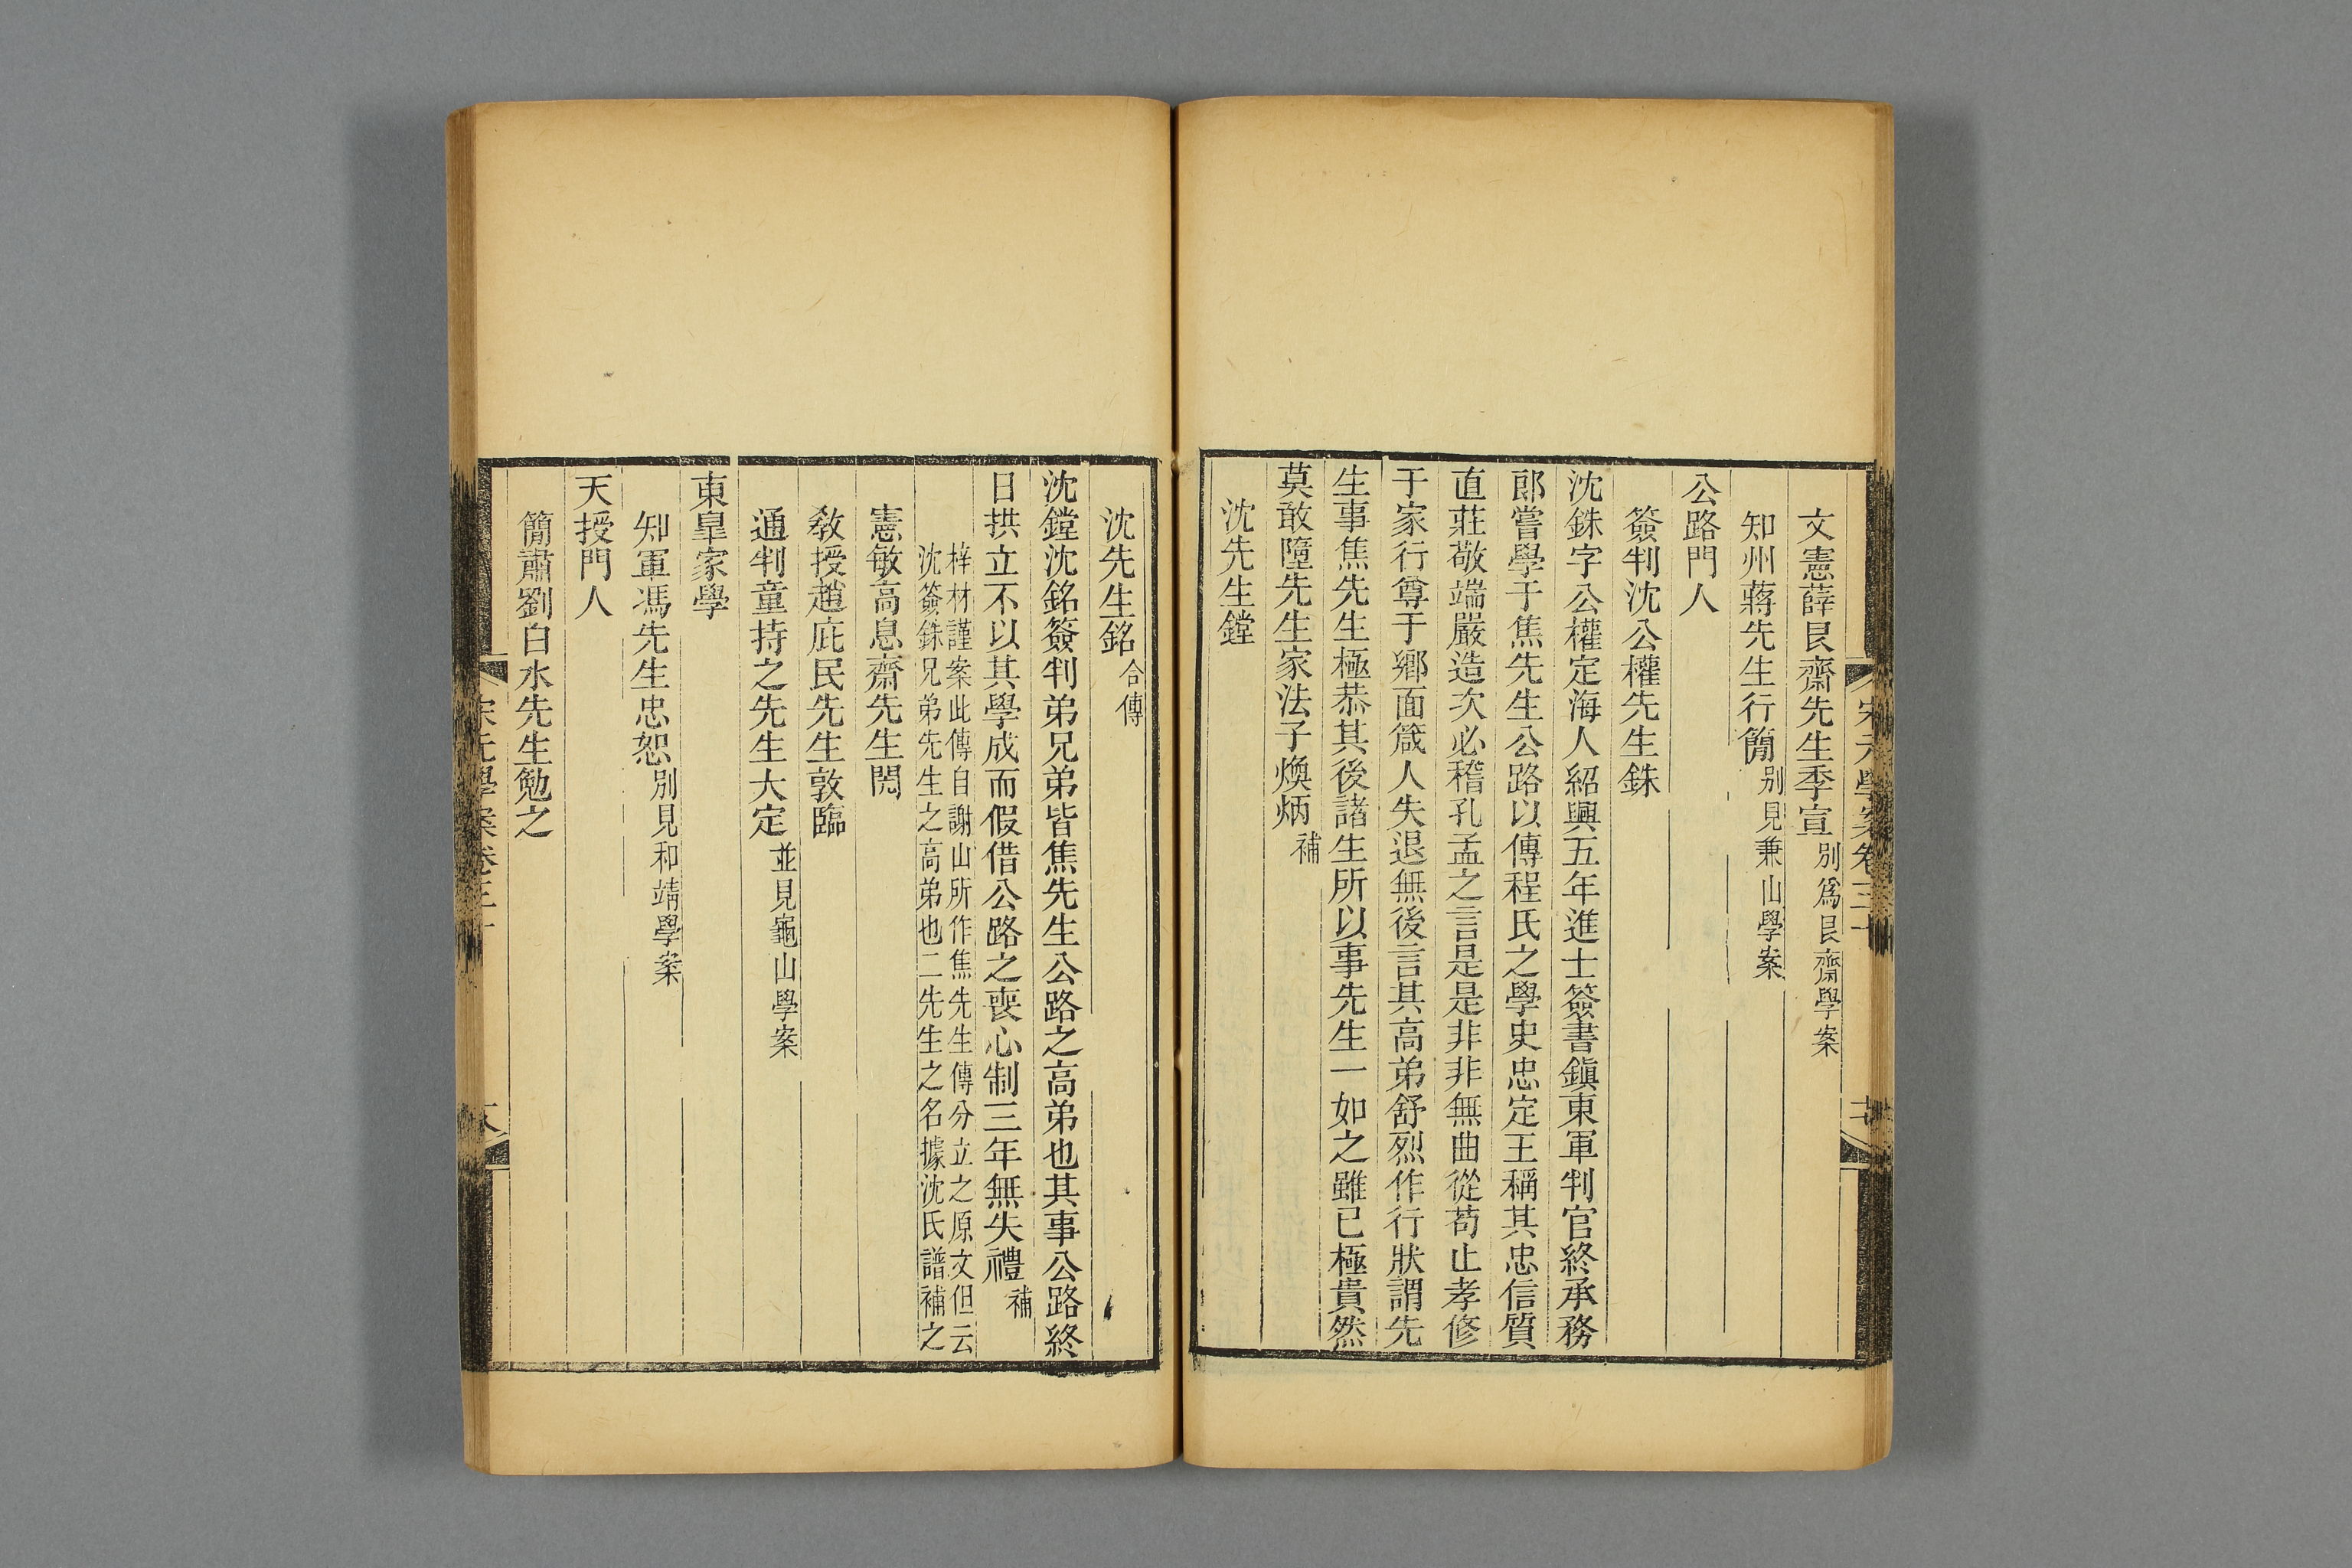 文憲薛艮齋先生季宣別爲艮齋學案
知州蔣先生行簡別見兼山學案
公路門人
簽判沈公權先生銖
沈銖字公權定海人紹興五年進士簽書鎭東軍判官終承務
郎嘗學于焦先生公路以傳程氏之學史忠定王稱其忠信質
直莊敬端嚴造次必稽孔孟之言是是非非無曲從苟止孝修
于家行尊于鄉面箴人失退無後言其高弟舒烈作行狀謂先
生事焦先生極恭其後諸生所以事先生一如之雖已極貴然
莫敢隳先生家法子煥炳補
沈先生鏜
沈先生銘合傳
沈鏜沈銘簽判弟兄弟皆焦先生公路之高弟也其事公路終
日拱立不以其學成而假借公路之喪心制三年無失禮補
梓材謹案此傳自謝山所作焦先生傳分立之原文但云
沈簽銖兄弟先生之高弟也二先生之名據沈氏譜補之
憲敏高息齋先生閌
敎授趙庇民先生敦臨
通判童持之先生大定並見龜山學案
東皐家學
知軍馮先生忠恕別見和靖學案
天授門人
簡肅劉白水先生勉之
宋元學案卷三十